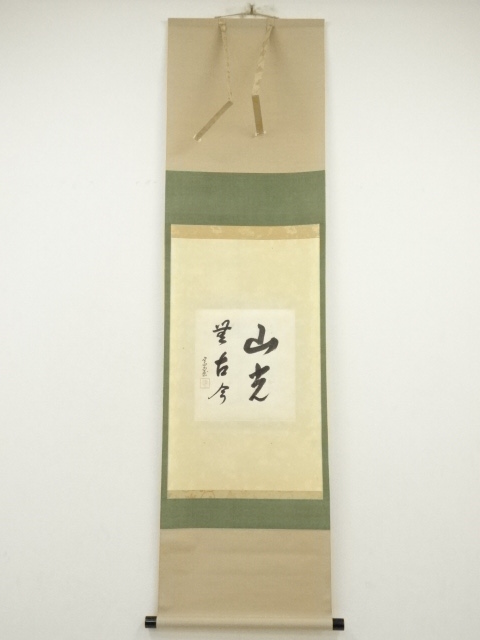 山光
無古今